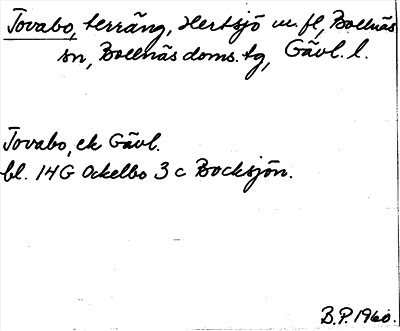 Tovabo, terräng, Hertsjö m. fl, Bollnäs
sn, Bollnäs doms. tg, Gävl. l.
Tovabo, ek Gävl.
bl. 14G Ockelbo 3 c Bocksjön.
B.P. 1960.